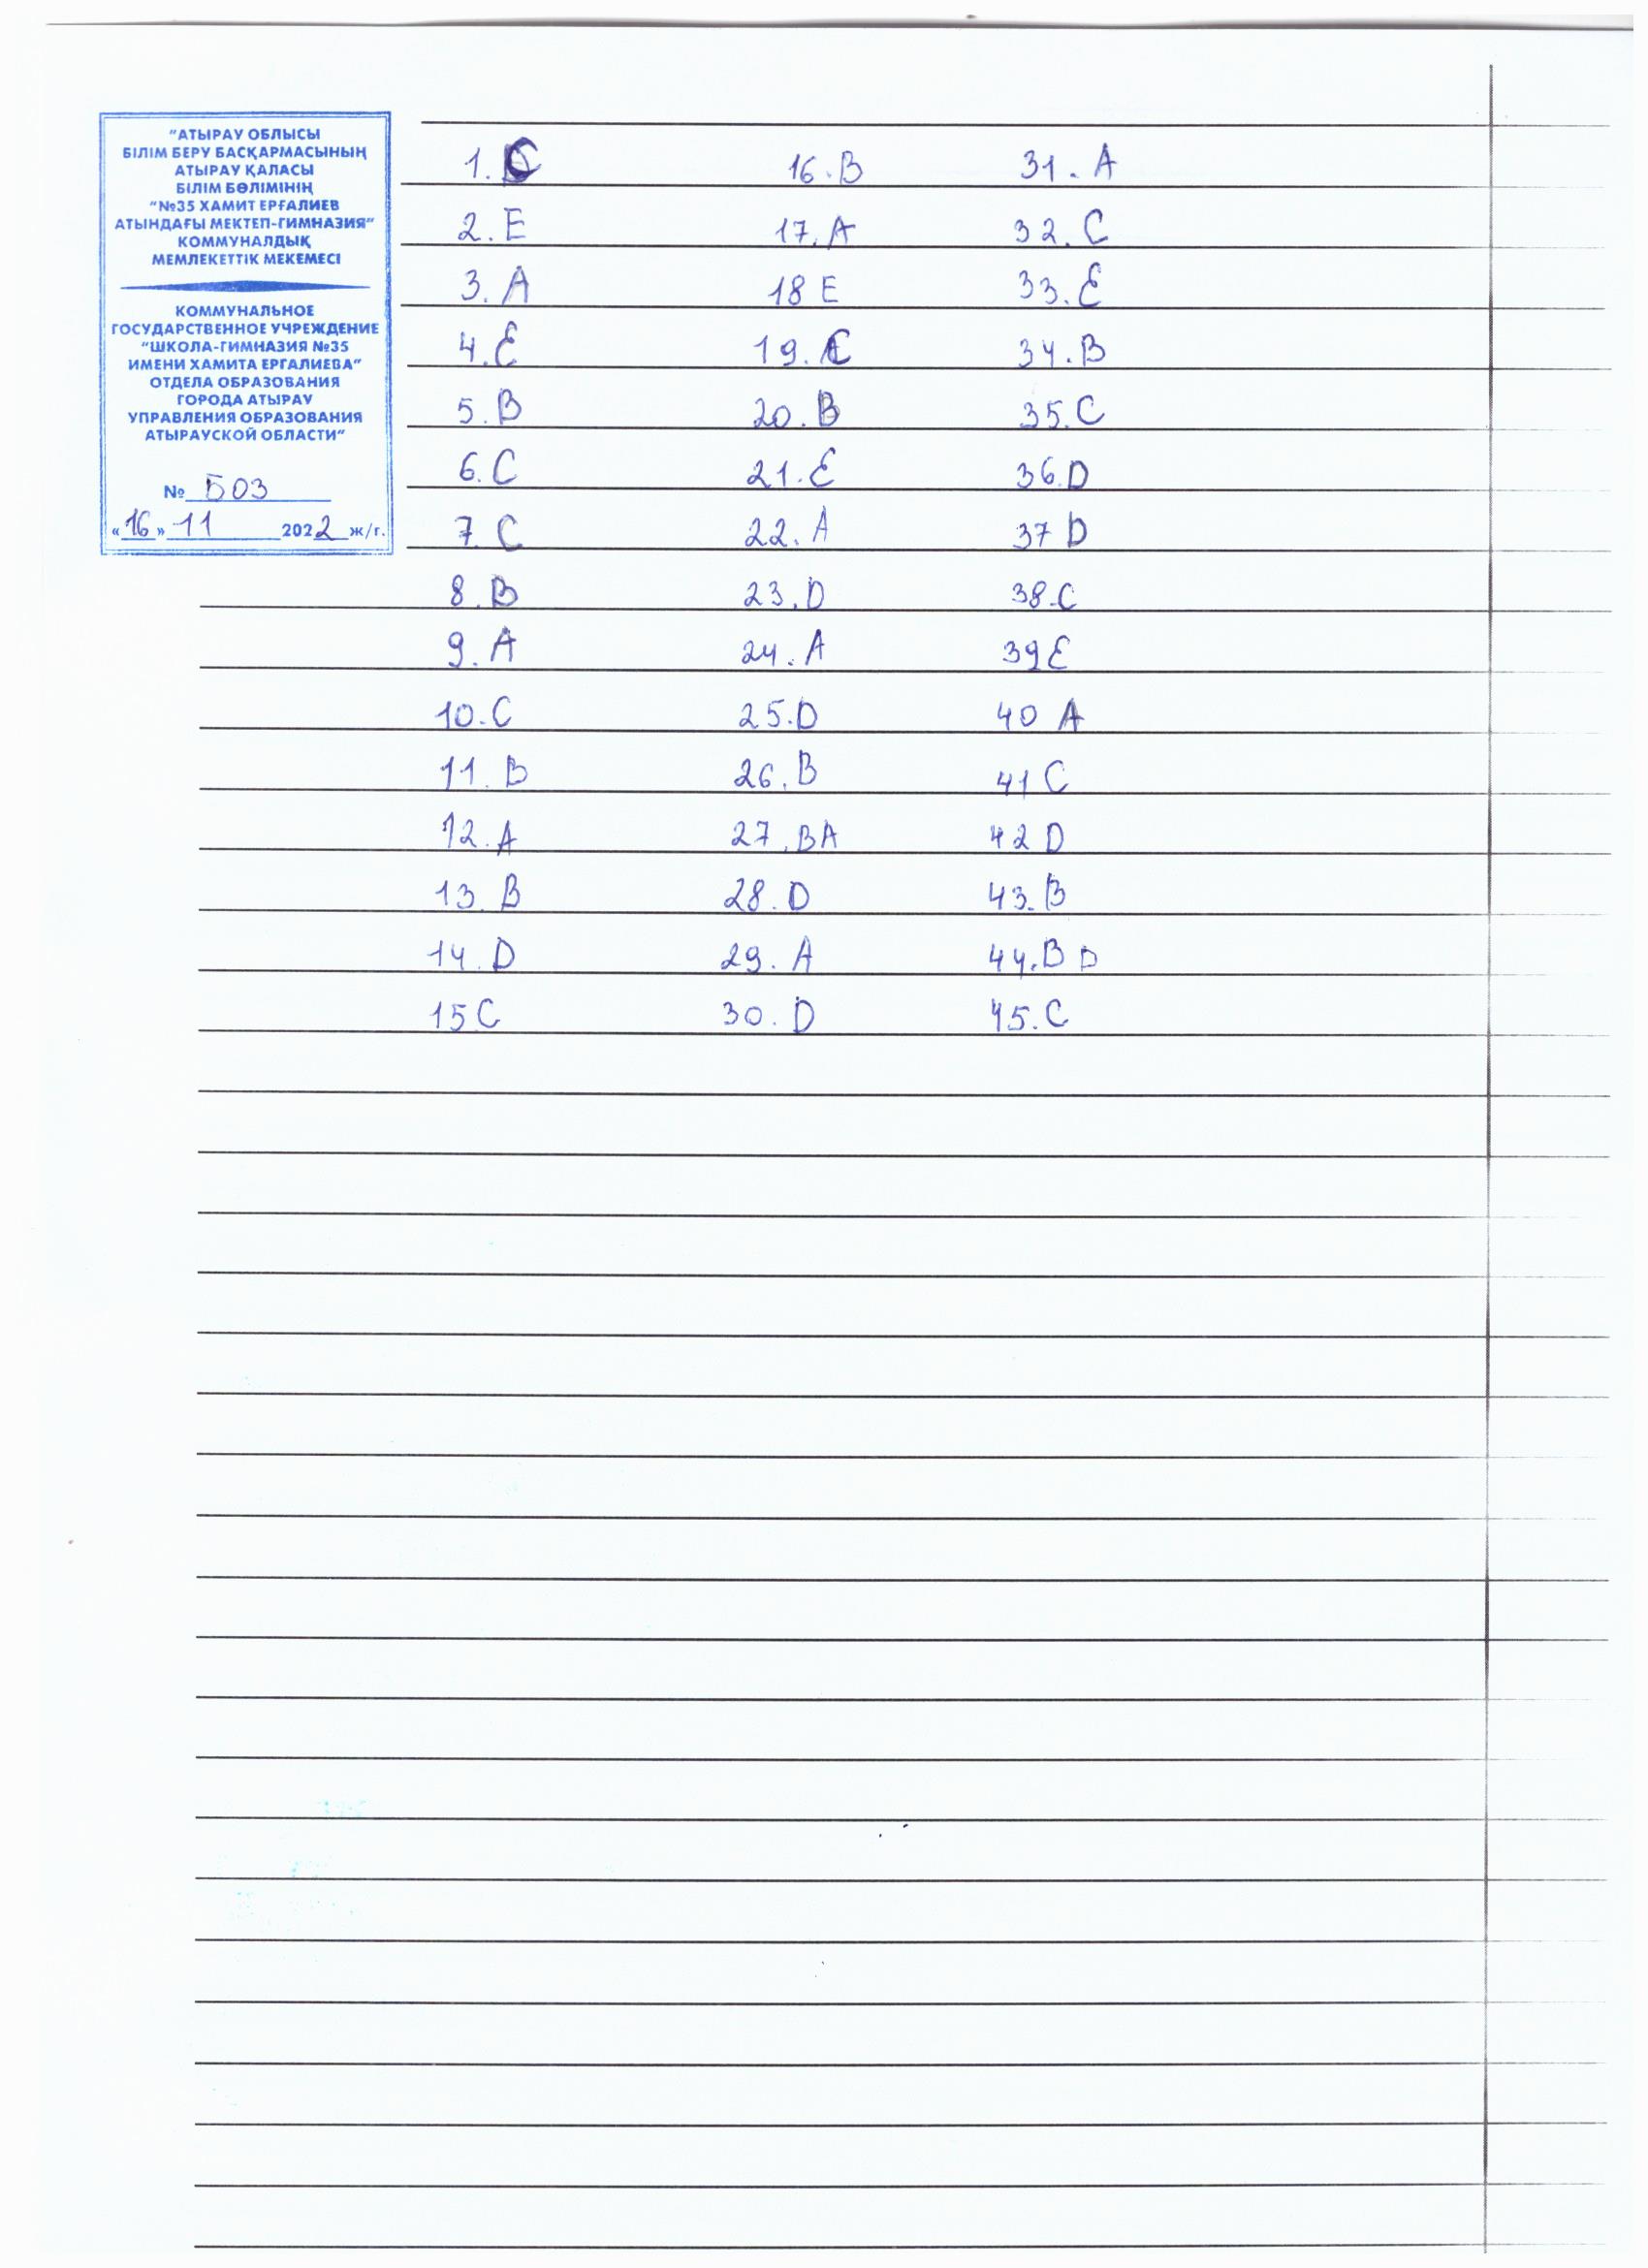 "АТЫРАУ ОБЛЫСЫ
БІЛІМ БЕРУ БАСҚАРМАСЫНЫҢ
АТЫРАУ ҚАЛАСЫ
БІЛІМ БӨЛІМІНІҢ
"№35 ХАМИТ ЕРҒАЛИЕВ
АТЫНДАҒЫ МЕКТЕП-ГИМНАЗИЯ"
КОММУНАЛДЫҚ
МЕМЛЕКЕТТІК МЕКЕМЕСІ
КОММУНАЛЬНОЕ
ГОСУДАРСТВЕННОЕ УЧРЕЖДЕНИЕ
"ШКОЛА-ГИМНАЗИЯ №35
ИМЕНИ ХАМИТА ЕРГАЛИЕВА"
ОТДЕЛА ОБРАЗОВАНИЯ
ГОРОДА АТЫРАУ
УПРАВЛЕНИЯ ОБРАЗОВАНИЯ
АТЫРАУСКОЙ ОБЛАСТИ"
№ 503
«16» 11 2022 ж/г.
1. C
2. E
3. A
4. E
5. B
6. C
7. C
8. B
9. A
10. C
11. B
12. A
13. B
14. D
15 C
16. B
17. A
18 E
19. C
20. B
21. E
22. A
23. D
24. A
25. D
26. B
27. BA
28. D
29. A
30. D
31. A
32. C
33. E
34. B
35. C
36. D
37 D
38. C
39 E
40 A
41 C
42 D
43. B
44. B D
45. C